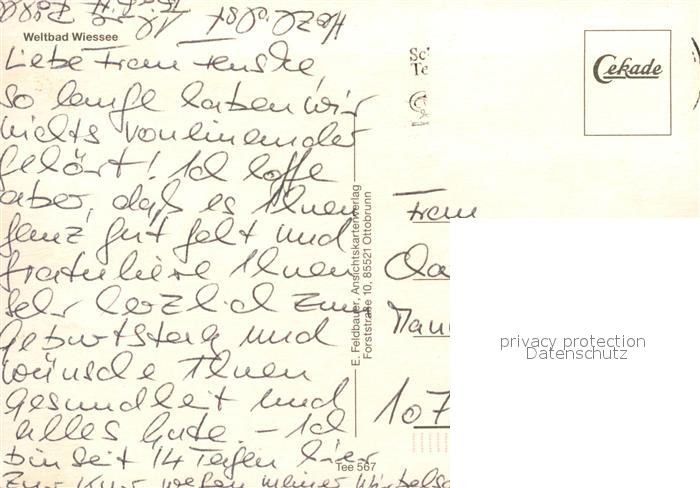 Weltbad Wiessee
Liebe Frau Henske,
so lange haben wir
nichts voneinander
gehört! Ich hoffe
aber, daß es Ihnen
ganz gut geht und
gratuliere Ihnen
sehr herzlich zum
Geburtstag und
wünsche Ihnen
Gesundheit und
alles Gute. – Ich
bin seit 14 Tagen hier
zur Kur wegen meiner Wirbels
Herzlichst
E. Feldbauer, Ansichtskartenverlag
Forststraße 10, 85521 Ottobrunn
Tee 567
Cekade
Frau
107
privacy protection
Datenschutz